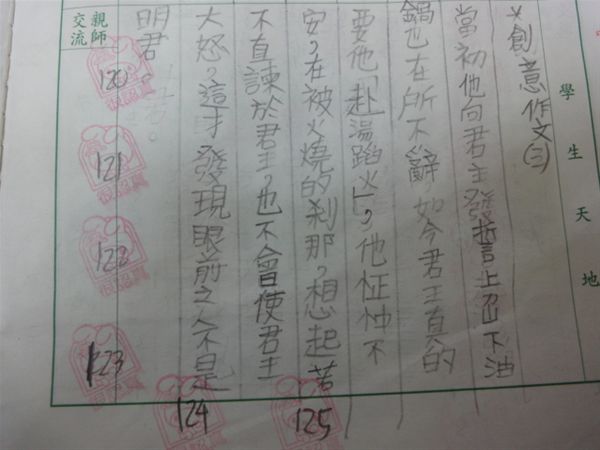 學生天地
*創意作文㈢
當初他向君主發誓上刀山下油
鍋也在所不辭,如今君王真的
要他「赴湯蹈火」,他怔忡不
安,在被火燒的剎那,想起若
不直諫於君主,也不會使君主
大怒,這才發現眼前之人不是
明君。
親師交流
120
121
122
123
124
125